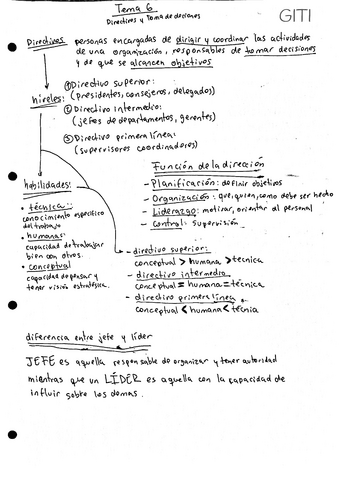 Tema 6
Directivos y Toma de decisiones
GITI
Directivos personas encargadas de dirigir y coordinar las actividades
de una organización, responsables de tomar decisiones
y de que se alcancen objetivos
niveles:
① Directivo superior:
(presidentes, consejeros, delegados)
② Directivo intermedio:
(jefes de departamentos, gerentes)
③ Directivo primera línea:
(supervisores coordinadores)
Función de la dirección
- Planificación: definir objetivos
- Organización: que, quien, como debe ser hecho
- Liderazgo: motivar, orientar al personal
- Control: supervisión
habilidades:
• técnica:
conocimiento específico
del trabajo
• humanas:
capacidad de trabajar
bien con otros.
• conceptual
capacidad de pensar y
tener visión estratégica.
- directivo superior:
conceptual > humana > técnica
- directivo intermedio
conceptual = humana = técnica
- directivo primera línea
conceptual < humana < técnia
diferencia entre jefe y líder
JEFE es aquella responsable de organizar y tener autoridad
mientras que un LÍDER es aquella con la capacidad de
influir sobre los demas.